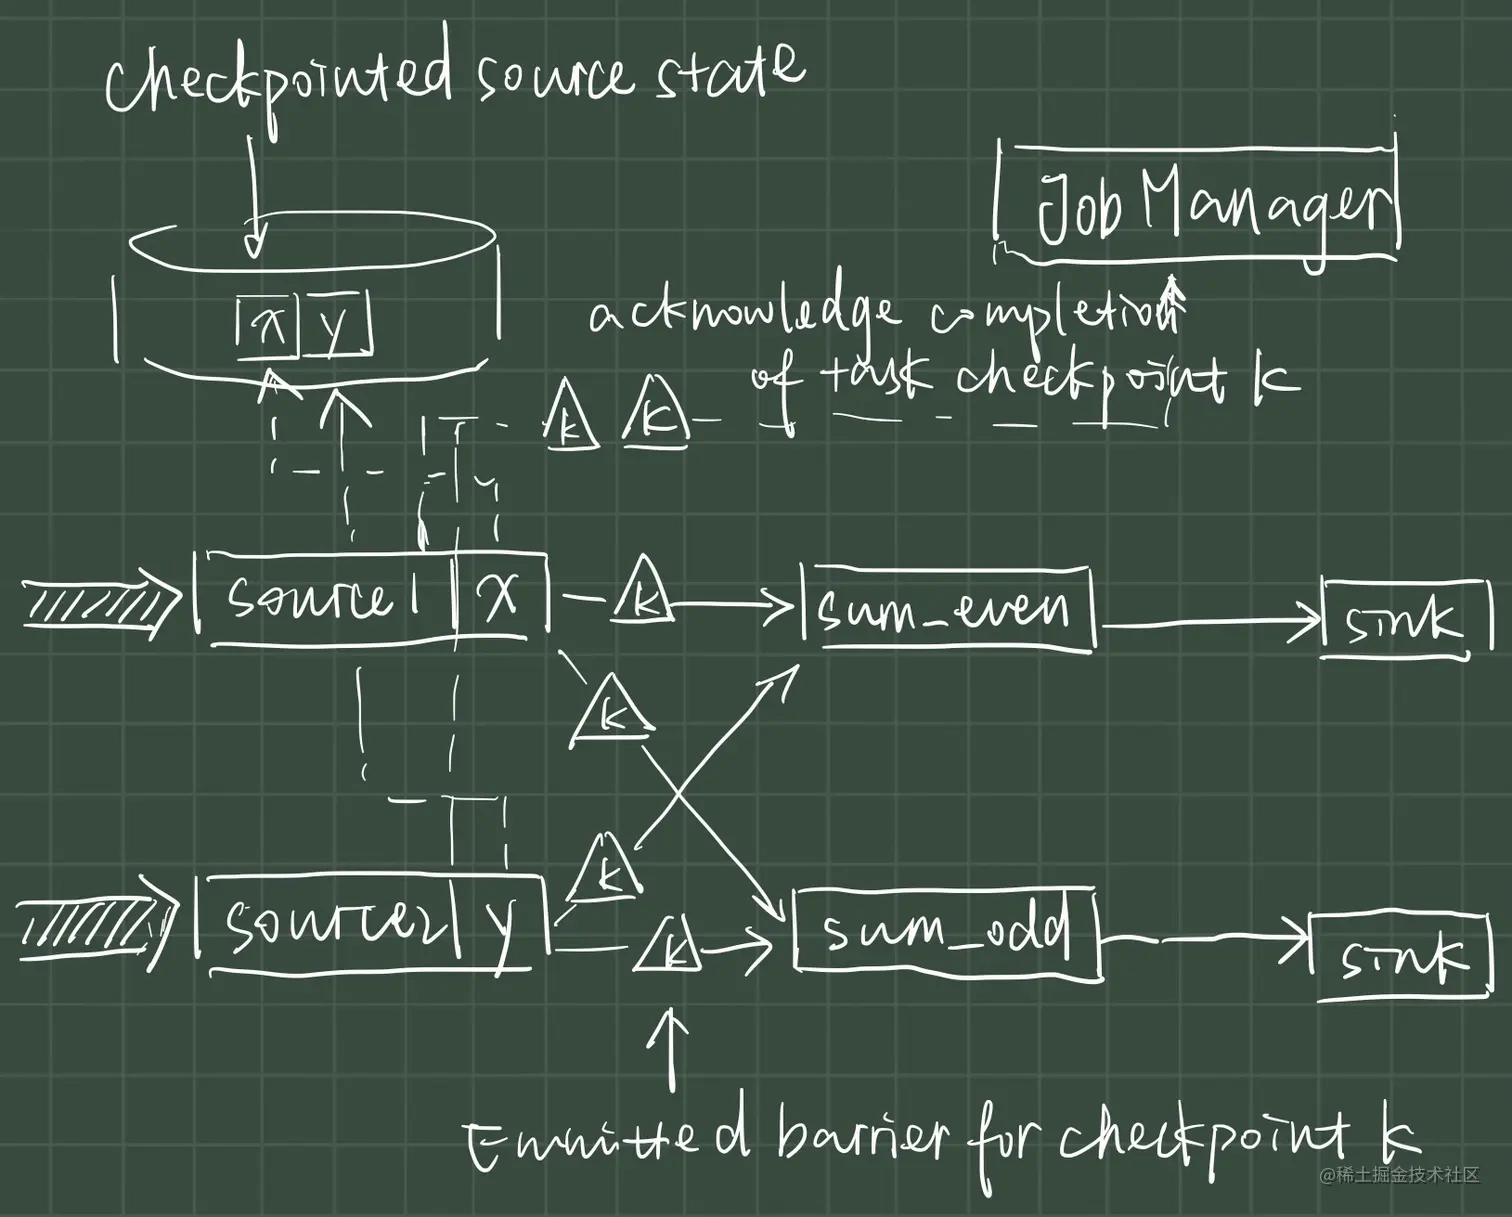 checkpointed source state
Job Manager
x y
acknowledge completion
of task checkpoint k
k k
source1 x k sum_even sink
k
k
source2 y k sum_odd sink
Emmitted barrier for checkpoint k
@稀土掘金技术社区